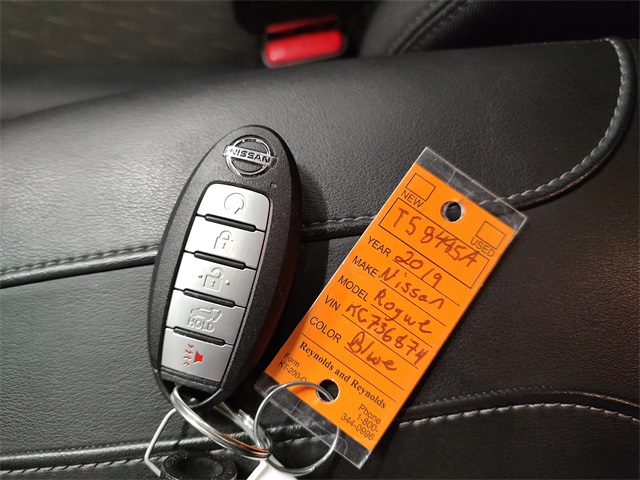 NISSAN
HOLD
NEW
USED
T58445A
YEAR 2019
MAKE Nissan
MODEL Rogue
VIN KC736874
COLOR Blue
Reynolds and Reynolds
Form
Phone
1-800-
344-0996